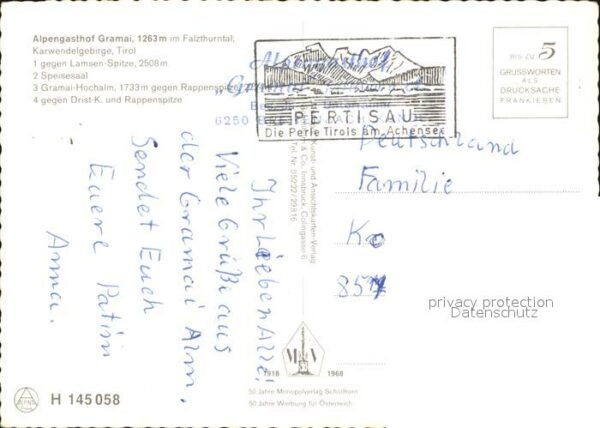 Alpengasthof Gramai, 1263 m im Falzthurntal;
Karwendelgebirge, Tirol
1 gegen Lamsen-Spitze, 2508 m
2 Speisesaal
3 Gramai-Hochalm, 1733 m gegen Rappenspitze
4 gegen Drist-K. und Rappenspitze
Alpengasthof
PERTISAU
Die Perle Tirols am Achensee
BIS ZU 5
GRUSSWORTEN
ALS
DRUCKSACHE
FRANKIEREN
Ihr Lieben Alle!
Viele Grüße aus
der Gramai Alm.
Sendet Euch
Euere Patin
Anna.
Kunst- und Ansichtskarten-Verlag
Innsbruck, Colingasse 6
Tel. Nr. 05222/29816
Deutschland
Familie
privacy protection
Datenschutz
MV
1918 1968
50 Jahre Monopolverlag Schöllhorn
50 Jahre Werbung für Österreich
H 145 058